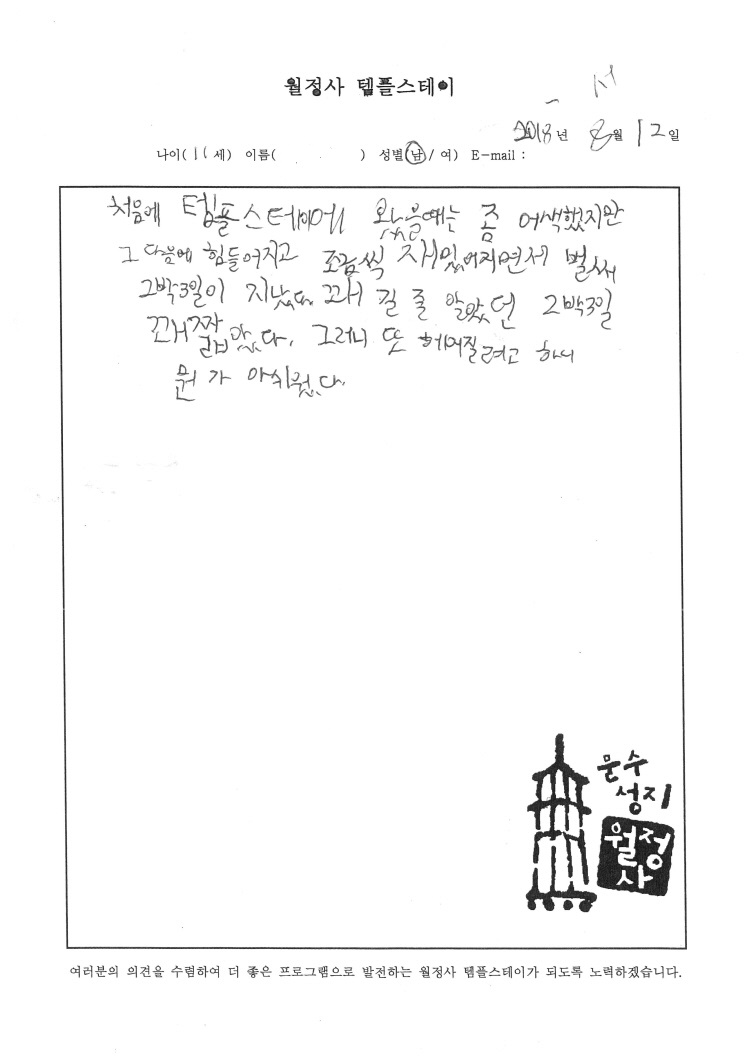 월정사 템플스테이
2018년 8월 12일
나이(11세) 이름( ) 성별(남/여) E-mail :
처음에 템플스테이에 왔을때는 좀 어색했지만
그 다음에 힘들어지고 조금씩 재밌어지면서 벌써
2박3일이 지났다. 꽤 길 줄 알았던 2박3일
꽤 짧았다. 그러니 또 헤어질려고 하니
뭔가 아쉬웠다.
문수
성지
월정
사
여러분의 의견을 수렴하여 더 좋은 프로그램으로 발전하는 월정사 템플스테이가 되도록 노력하겠습니다.